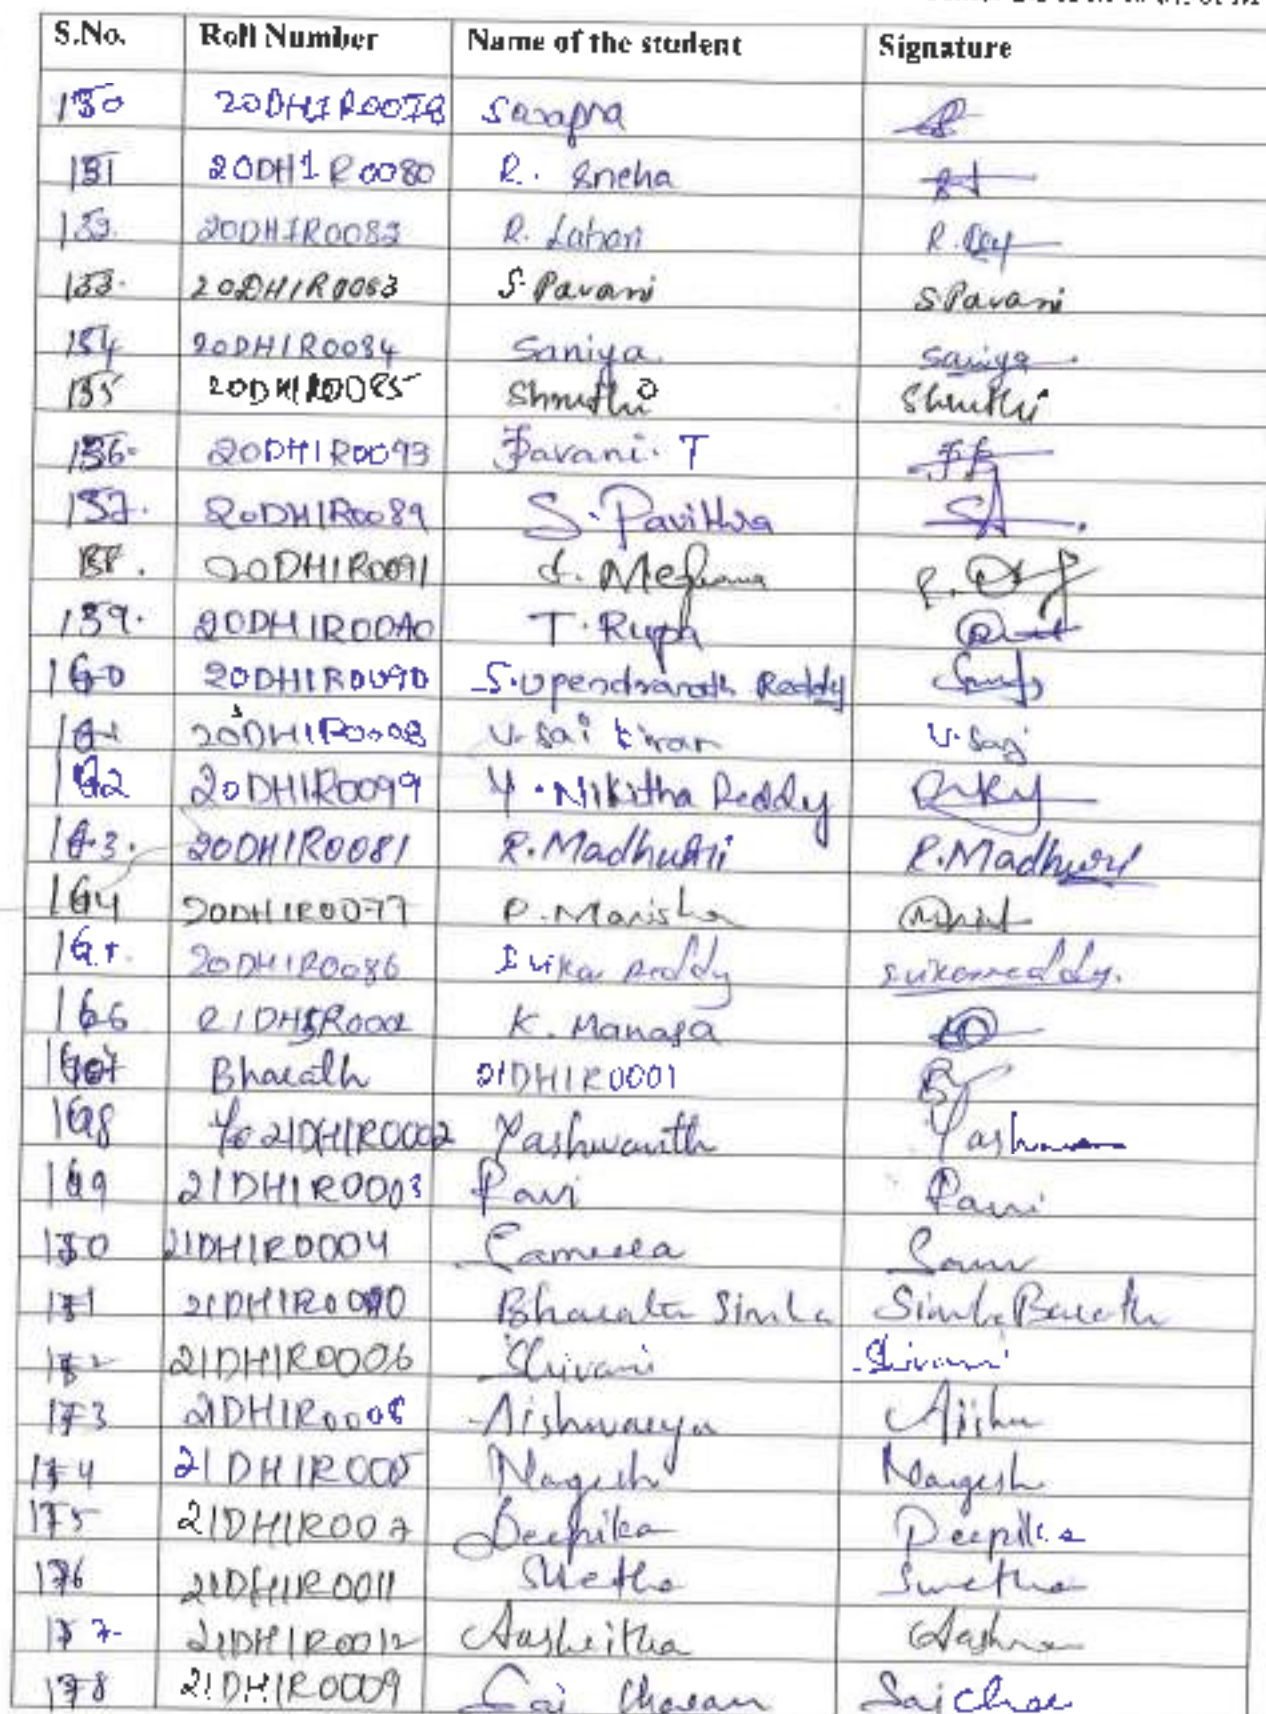 S.No. Roll Number Name of the student Signature
150 20DH1R0078 Sarapra
151 20DH1R0080 R. Sneha
152. 20DH1R0082 R. Lahari
153. 20DH1R0083 S. Pavani S Pavani
154 20DH1R0084 Saniya. Saniya.
155 20DH1R0085 Shruthi Shruthi
156. 20DH1R0093 Pavani. T
157. 20DH1R0089 S. Pavithra
158. 20DH1R0091 Meghana
159. 20DH1R00A0 T. Rupa
160 20DH1R0090 S. Upendranath Reddy
161 20DH1R0008 V. Sai kiran V. Sai
162 20DH1R0099 Y. Nikitha Reddy
163. 20DH1R0081 R. Madhuri R. Madhuri
164 20DH1R0077 P. Manisha
165. 20DH1R0086 Reddy
166 21DH5R0002 K. Manasa
167 Bharath 21DH1R0001
168 21DH1R0002 Yashwanth
169 21DH1R0003 Ravi Ravi
170 21DH1R0004
171 21DH1R0010 Bharath Simha
172 21DH1R0006 Shivani Shivani
173 21DH1R0008 Aishwarya
174 21DH1R0005 Nagesh Nagesh
175 21DH1R007 Deepika Deepika
176 21DH1R0011 Swetha Swetha
177. 21DH1R0012
178 21DH1R0009 Sai Charan